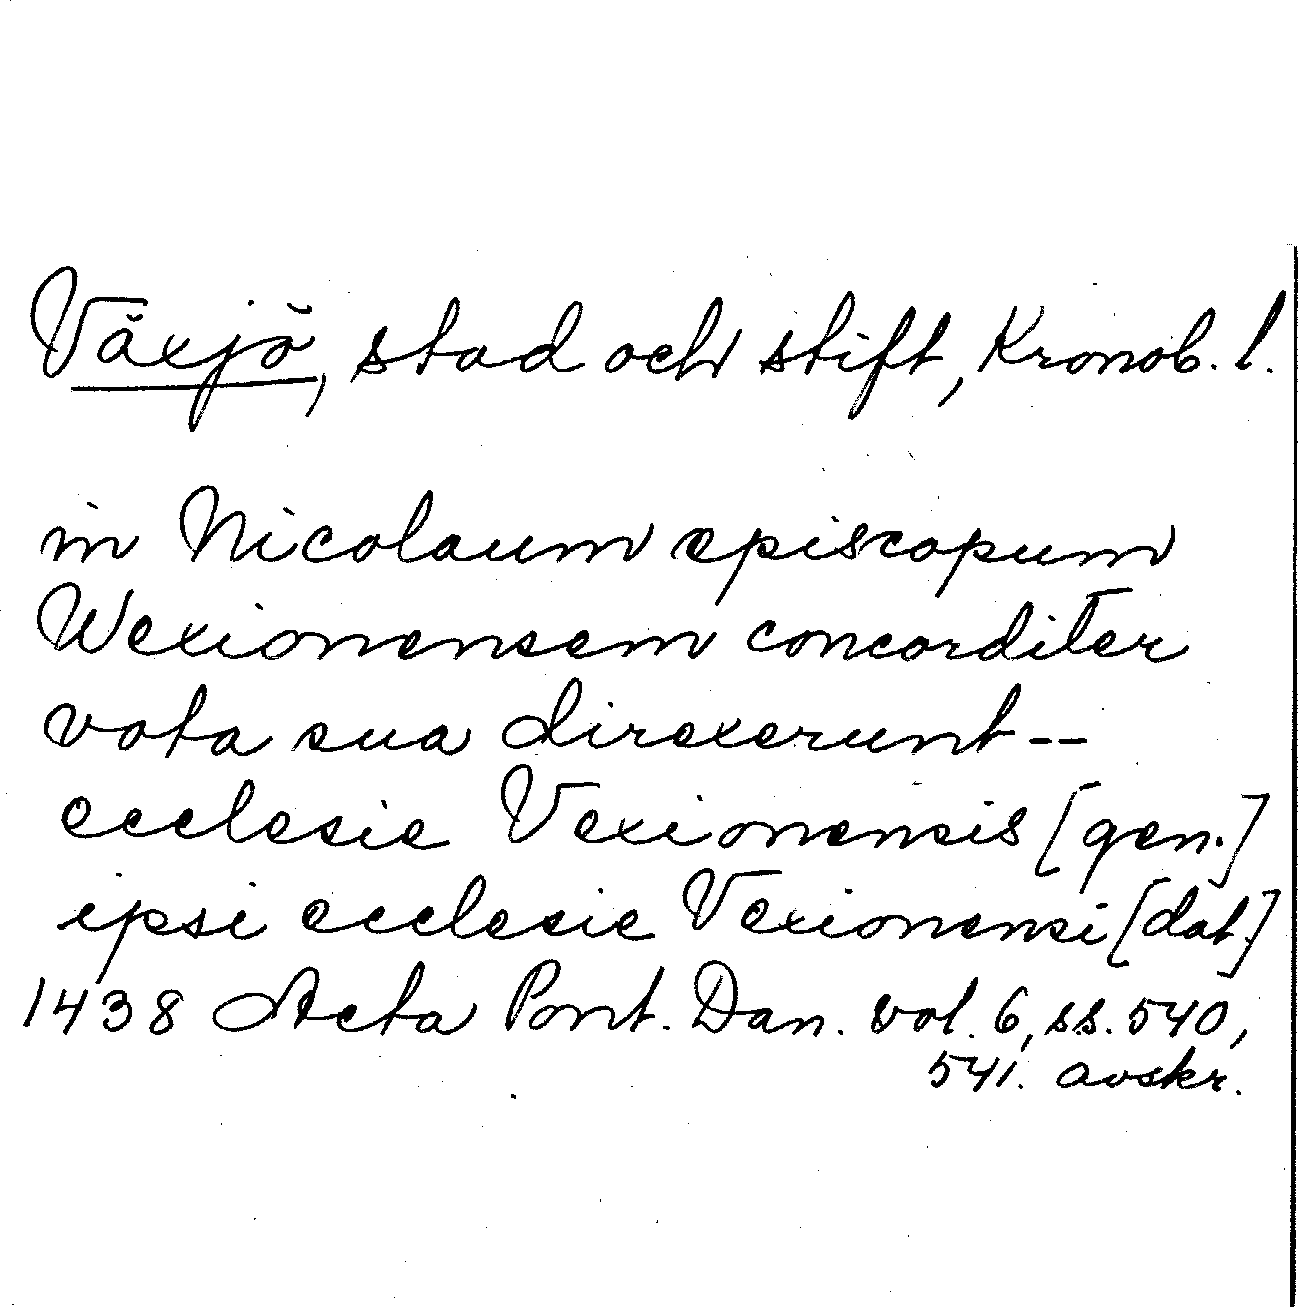 Växjö, stad och stift, Kronob. l.
in Nicolaum episcopum
Wexionensem concorditer
vota sua direxerunt --
ecclesie Vexionensis [gen.]
ipsi ecclesie Vexionensi [dat.]
1438 Acta Pont. Dan. vol. 6, ss. 540,
541. avskr.